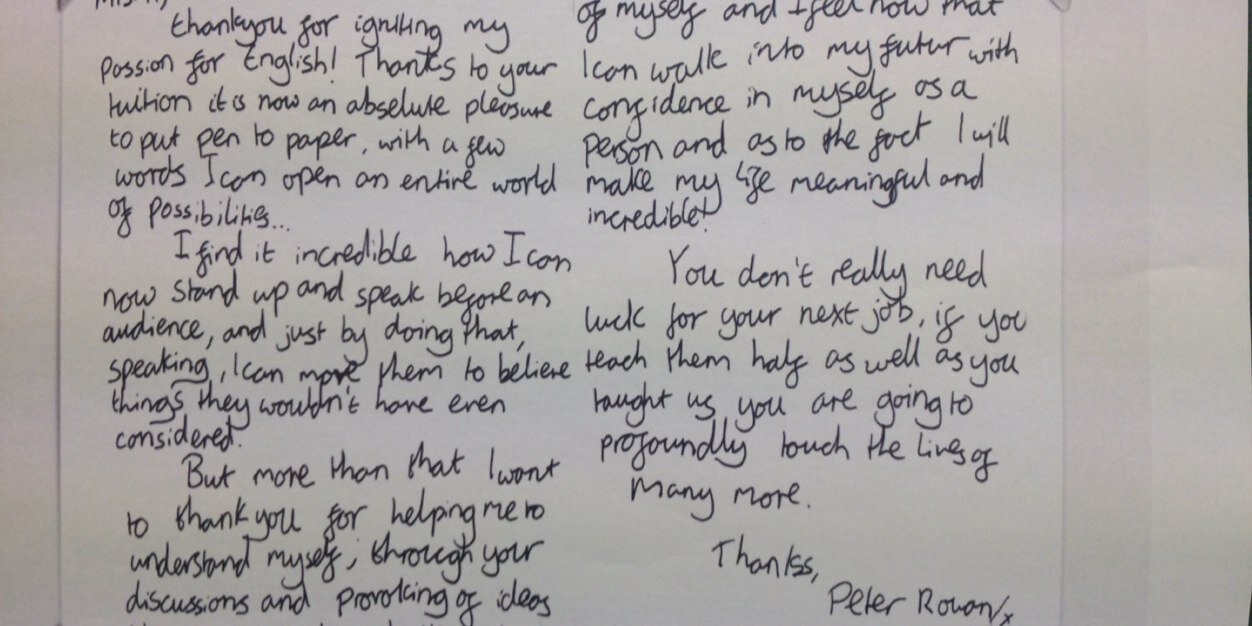 thankyou for igniting my
passion for English! Thanks to your
tuition it is now an absolute pleasure
to put pen to paper, with a few
words I can open an entire world
of possibilities...
I find it incredible how I can
now stand up and speak before an
audience, and just by doing that,
speaking, I can move them to believe
things they wouldn't have even
considered.
But more than that I want
to thank you for helping me to
understand myself, through your
discussions and provoking of ideas
of myself and I feel now that
I can walk into my futur with
confidence in myself as a
person and as to the fact I will
make my life meaningful and
incredible!
You don't really need
luck for your next job, if you
teach them half as well as you
taught us you are going to
profoundly touch the lives of
many more.
Thankss,
Peter Rowan x